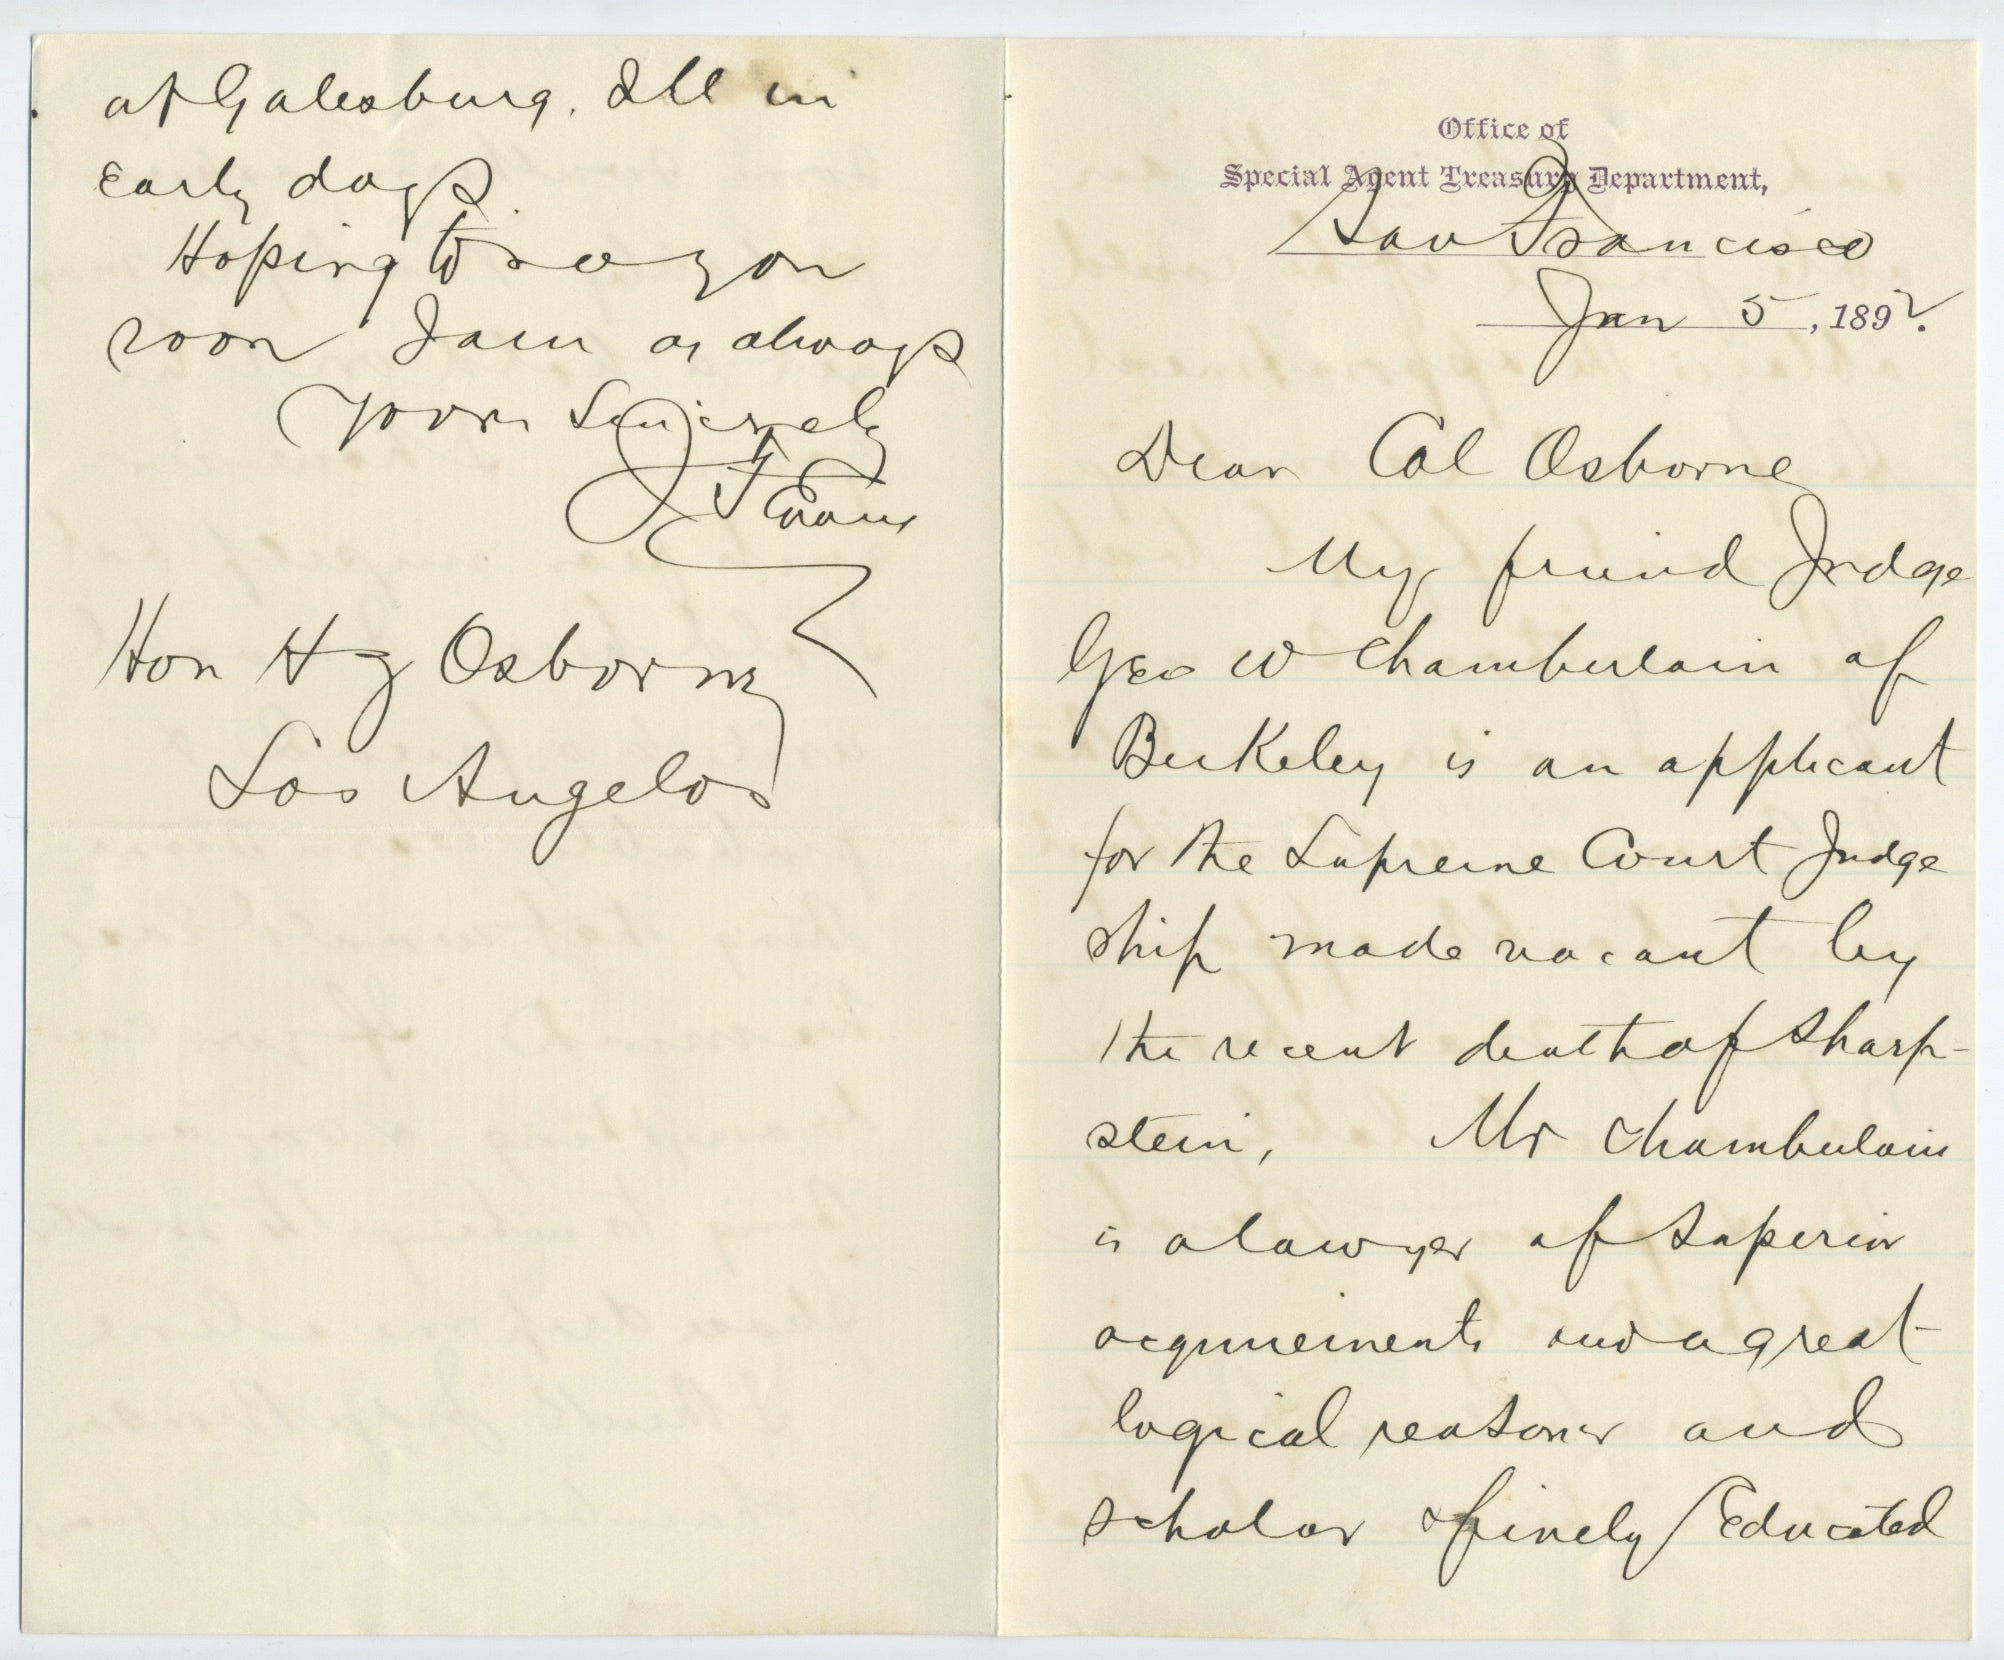 Office of
Special Agent Treasury Department,
San Francisco
Jan 5, 1892.
Dear Col Osborne
My friend Judge
Geo W Chamberlain of
Berkeley is an applicant
for the Supreme Court Judge
ship made vacant by
the recent death of Sharp-
stein, Mr Chamberlain
is a lawyer of superior
acquirements and a great
logical reasoner and
scholar & finely Educated
at Galesburg. Ill in
Early days
Hoping to see you
soon I am as always
Yours Sincerely
J F Evans
Hon H Z Osborne
Los Angelos